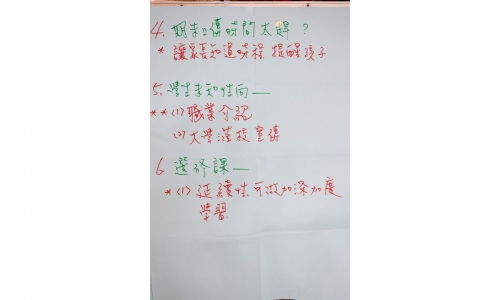 4. 期末上傳時間太趕？
* 讓家長知道時程 提醒孩子
5. 學生未知性向—
** (1) 職業介紹
(2) 大學蒞校宣傳
6 選修課—
* (1) 延續性 可做加深加廣
學習